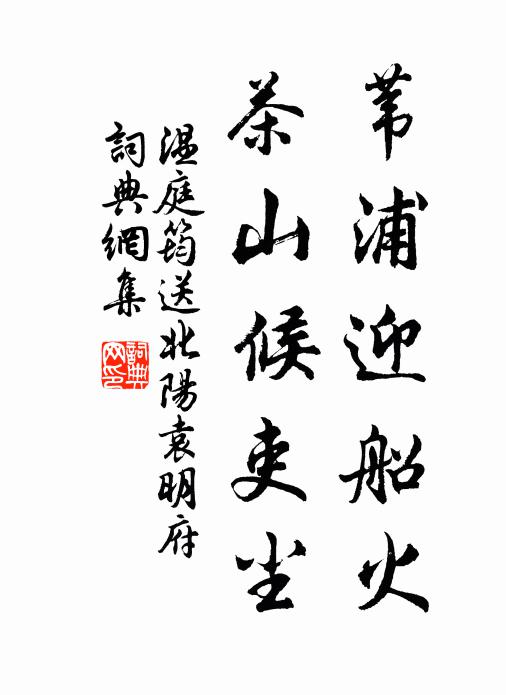 苇浦迎船火
茶山候吏尘
温庭筠送北陽袁明府
詞典網集
詞典網印